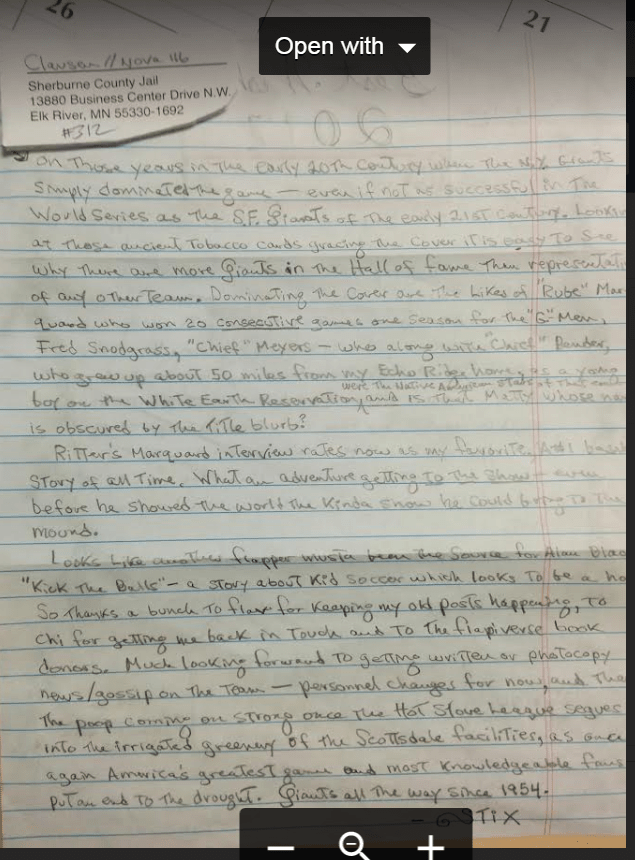 26
21
Open with
Sherburne County Jail
13880 Business Center Drive N.W.
Elk River, MN 55330-1692
#312
on Those years in The early 20Th Century when The N.Y. Giants
simply dominated the game — even if not as successful in The
World Series as The S.F. Giants of The early 21st Century. Lookin
at These ancient Tobacco cards gracing The Cover it is easy To see
why There are more Giants in the Hall of fame Then representati
of any other Team. Dominating The Cover are The Likes of "Rube" Mar
quard who won 20 consecutive games one season for The "G" Men,
Fred Snodgrass, "Chief" Meyers — who along with "Chief" Bender,
who grew up about 50 miles from my Echo Ridge home, as a young
were The Native American stars of That
boy on the White Earth Reservation, and is That Matty whose na
is obscured by The Title blurb?
Ritter's Marquard interview rates now as my favorite
story of all Time. What an adventure getting To The show — even
before he showed The world The Kinda snow he could bring To The
mound.
Looks Like another flapper musta been The Source for Alan Blac
"Kick The Balls" — a story about Kid soccer which looks To be a ho
So Thanks a bunch To flap for Keeping my old posts happening, To
Chi for getting me back in Touch and To The flapiverse book
donors. Much looking forward To getting written or photocopy
news/gossip on The Team — personnel changes for now, and Tha
The poop coming on strong once The Hot Stove League segues
into The irrigated greenery of The Scottsdale facilities, as once
again America's greatest game and most Knowledgeable fans
put an end To The drought. Giants all The way since 1954.
STIX